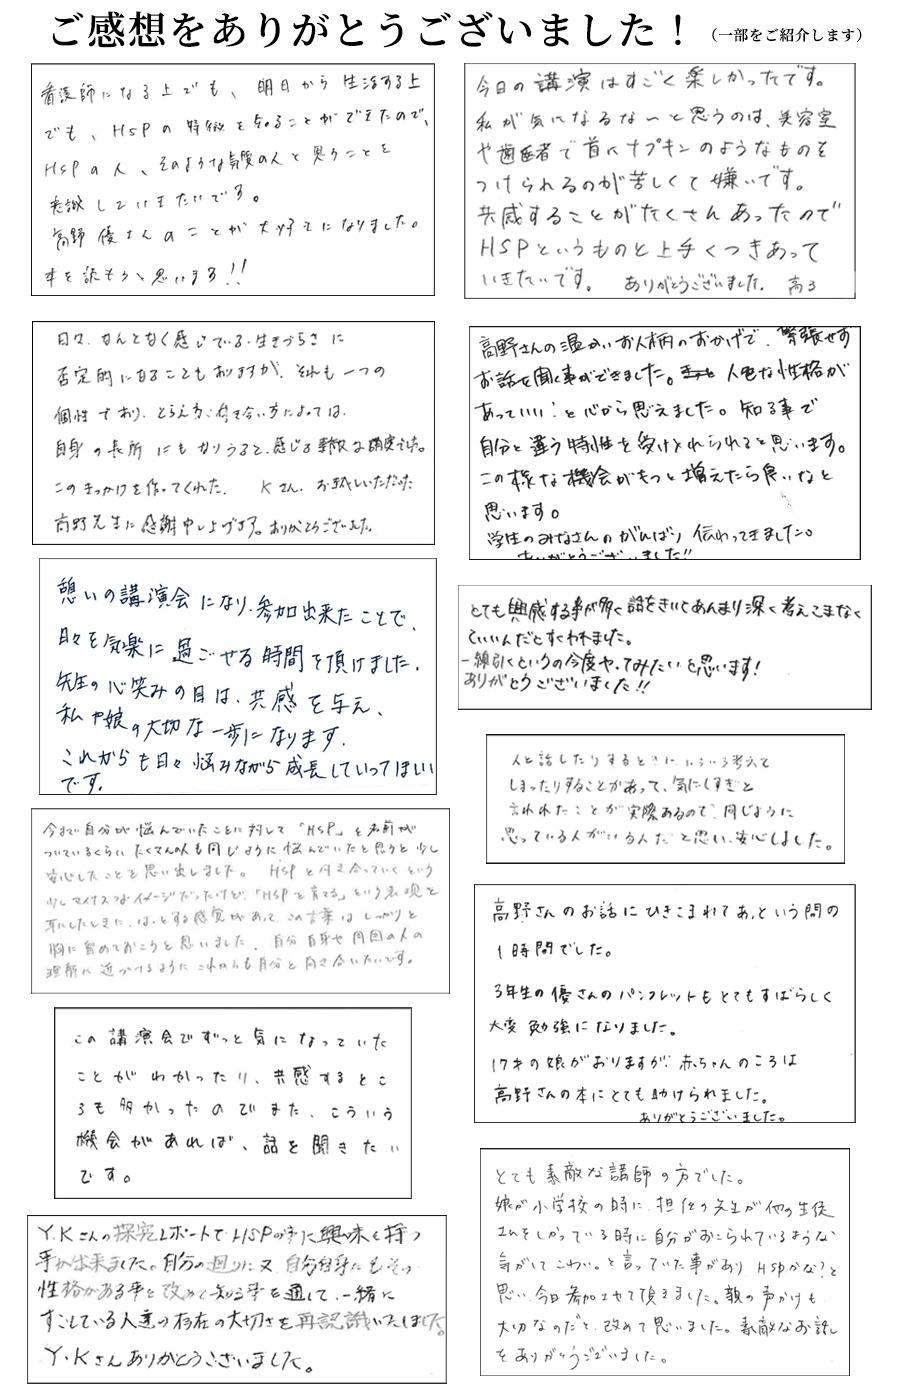 ご感想をありがとうございました！（一部をご紹介します）
看護師になる上でも、明日から生活する上
でも、HSPの特徴を知ることができたので、
HSPの人、そのような気質の人と関うことを
意識していきたいです。
高野優さんのことが大好きになりました。
本を読もうと思います!!
今日の講演はすごく楽しかったです。
私が気になるな〜と思うのは、美容室
や歯医者で首にナプキンのようなものを
つけられるのが苦しくて嫌いです。
共感することがたくさんあったので
HSPというものと上手くつきあって
いきたいです。 ありがとうございました。 高3
日々、なんとなく感じている・生きづらさに
否定的になることもありますが、それも一つの
個性であり、とらえ方・付き合い方によっては、
自身の長所にもなりうると、感じる素敵な講演でした。
このきっかけを作ってくれた、 Kさん、お話しいただいた
高野先生に感謝申し上げます。ありがとうございました。
高野さんの温かいお人柄のおかげで、緊張せず
お話を聞く事ができました。人色な性格が
あっていい！と心から思えました。知る事で
自分と違う特性を受け入れられると思います。
この様な機会がもっと増えたら良いなと
思います。
学生のみなさんのがんばり伝わってきました。
ありがとうございました!!
憩いの講演会になり、参加出来たことで、
日々を気楽に過ごせる時間を頂けました。
先生の心笑みの日は、共感を与え、
私や娘の大切な一歩になります。
これからも日々悩みながら成長していってほしい
です。
とても興感する事が多く話をきいてあんまり深く考えこまなく
ていいんだとすくわれました。
一線引くというの今度やってみたいと思います！
ありがとうございました!!
人と話したりするときにいろいろ考えて
しまったりすることがあって、気にしすぎと
言われたことが実際あるので、同じように
思っている人がいる人だと思い、安心しました。
今まで自分が悩んでいたことに対して「HSP」と名前が
ついているくらいたくさんの人も同じように悩んでいたと思うと少し
安心したことを思い出しました。HSPと向き合っていくという
少しマイナスなイメージだったけど、「HSPを育てる」という表現を
耳にしたときに、はっとする感覚があって、この言葉はしっかりと
胸に留めておこうと思いました。自分自身や周囲の人の
理解に近づけるようにこれからも自分と向き合いたいです。
高野さんのお話にひきこまれてあっという間の
1時間でした。
3年生の優さんのパンフレットもとてもすばらしく
大変勉強になりました。
17才の娘がおりますが、赤ちゃんのころは
高野さんの本にとても助けられました。
ありがとうございました。
この講演会でずっと気になっていた
ことがわかったり、共感するとこ
ろも多かったのでまた、こういう
機会があれば、話を聞きたい
です。
とても素敵な講師の方でした。
娘が小学校の時に、担任の先生が他の生徒
さんをしかっている時に自分がおこられているような
気がしてこわい。と言っていた事がありHSPかな？と
思い、今日参加させて頂きました。親の声かけも
大切なのだと、改めて思いました。素敵なお話し
をありがとうございました。
Y.Kさんの探究レポートでHSPの事に興味を持つ
事が出来ました。自分の廻りに又、自分自身にもその
性格がある事を改めて知る事を通して、一緒に
すごしている人達の存在の大切さを再認識いたしました。
Y・Kさんありがとうございました。